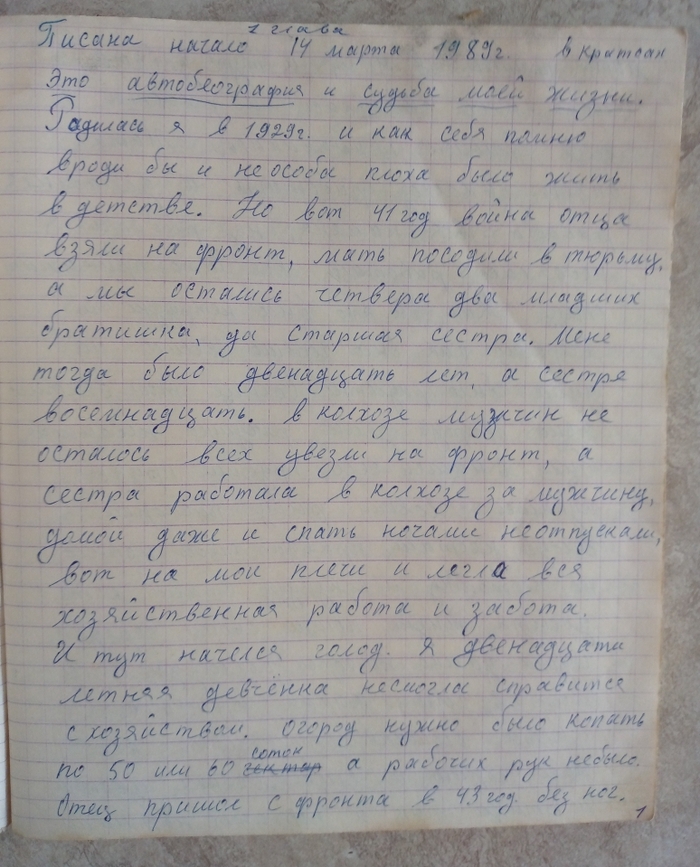 1 глава
Писана начало 14 марта 1989г. в кратсан
Это автобеография и судьба моей жизни.
Радилась я в 1929г. и как себя помню
вроди бы и неособа плоха было жить
в детстве. Но вот 41 год война отца
взяли на фронт, мать посодили в тюрьму,
а мы остались четвера два младших
братишка, да старшая сестра. Мене
тогда было двенадцать лет, а сестре
восемнадцать. в колхозе мужчин не
осталось всех увезли на фронт, а
сестра работала в колхозе за мужчину,
домой даже и спать ночами неотпускали,
вот на мои плечи и легла вся
хозяйственная работа и забота.
И тут начелся голод. Я двенадцати
летняя девчёнка несмогла справится
с хозяйством. Огород нужно было копать
по 50 или 60 гектар соток а рабочих рук небыло.
Отец пришол с фронта в 43 год. без ног.
1